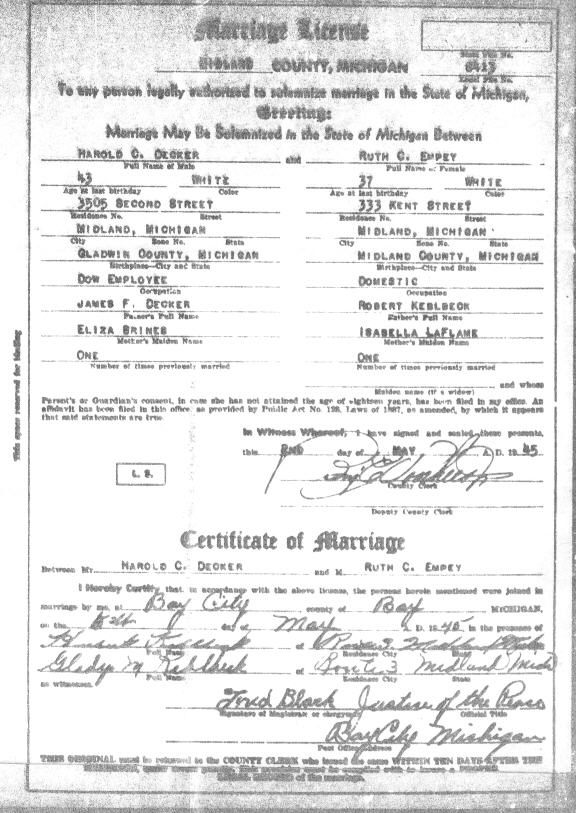 Marriage License
MIDLAND COUNTY, MICHIGAN
State File No.
Local File No.
To any person legally authorized to solemnize marriage in the State of Michigan,
Greeting:
Marriage May Be Solemnized in the State of Michigan Between
HAROLD C. DECKER and RUTH C. EMPEY
Full Name of Male Full Name of Female
43 WHITE 37 WHITE
Age at last birthday Color Age at last birthday Color
3505 SECOND STREET 333 KENT STREET
Residence No. Street Residence No. Street
MIDLAND, MICHIGAN MIDLAND, MICHIGAN
City Zone No. State City Zone No. State
GLADWIN COUNTY, MICHIGAN MIDLAND COUNTY, MICHIGAN
Birthplace—City and State Birthplace—City and State
DOW EMPLOYEE DOMESTIC
Occupation Occupation
JAMES F. DECKER ROBERT KEBLBECK
Father's Full Name Father's Full Name
ELIZA BRINES ISABELLA LAFLAME
Mother's Maiden Name Mother's Maiden Name
ONE ONE
Number of times previously married Number of times previously married
and whose
Maiden name (if a widow)
Parent's or Guardian's consent, in case she has not attained the age of eighteen years, has been filed in my office. An
affidavit has been filed in this office, as provided by Public Act No. 128, Laws of 1887, as amended, by which it appears
that said statements are true.
In Witness Whereof, I have signed and sealed these presents,
this 2ND day of MAY A. D. 1945
L. S.
County Clerk
Deputy County Clerk
Certificate of Marriage
Between Mr. HAROLD C. DECKER and M RUTH C. EMPEY
I Hereby Certify that in accordance with the above license, the persons herein mentioned were joined in
marriage by me, at Bay City county of Bay MICHIGAN,
on the day of May A. D. 1945 in the presence of
of
Full Name Residence City State
Gladys M of Route 3 Midland Mich
Full Name Residence City State
as witnesses.
Fred Black Justice of the Peace
Signature of Magistrate or clergyman Official Title
Bay City Michigan
Post Office Address
THIS ORIGINAL must be returned to the COUNTY CLERK who issued the same WITHIN TEN DAYS AFTER THE
of the marriage.
This space reserved for binding